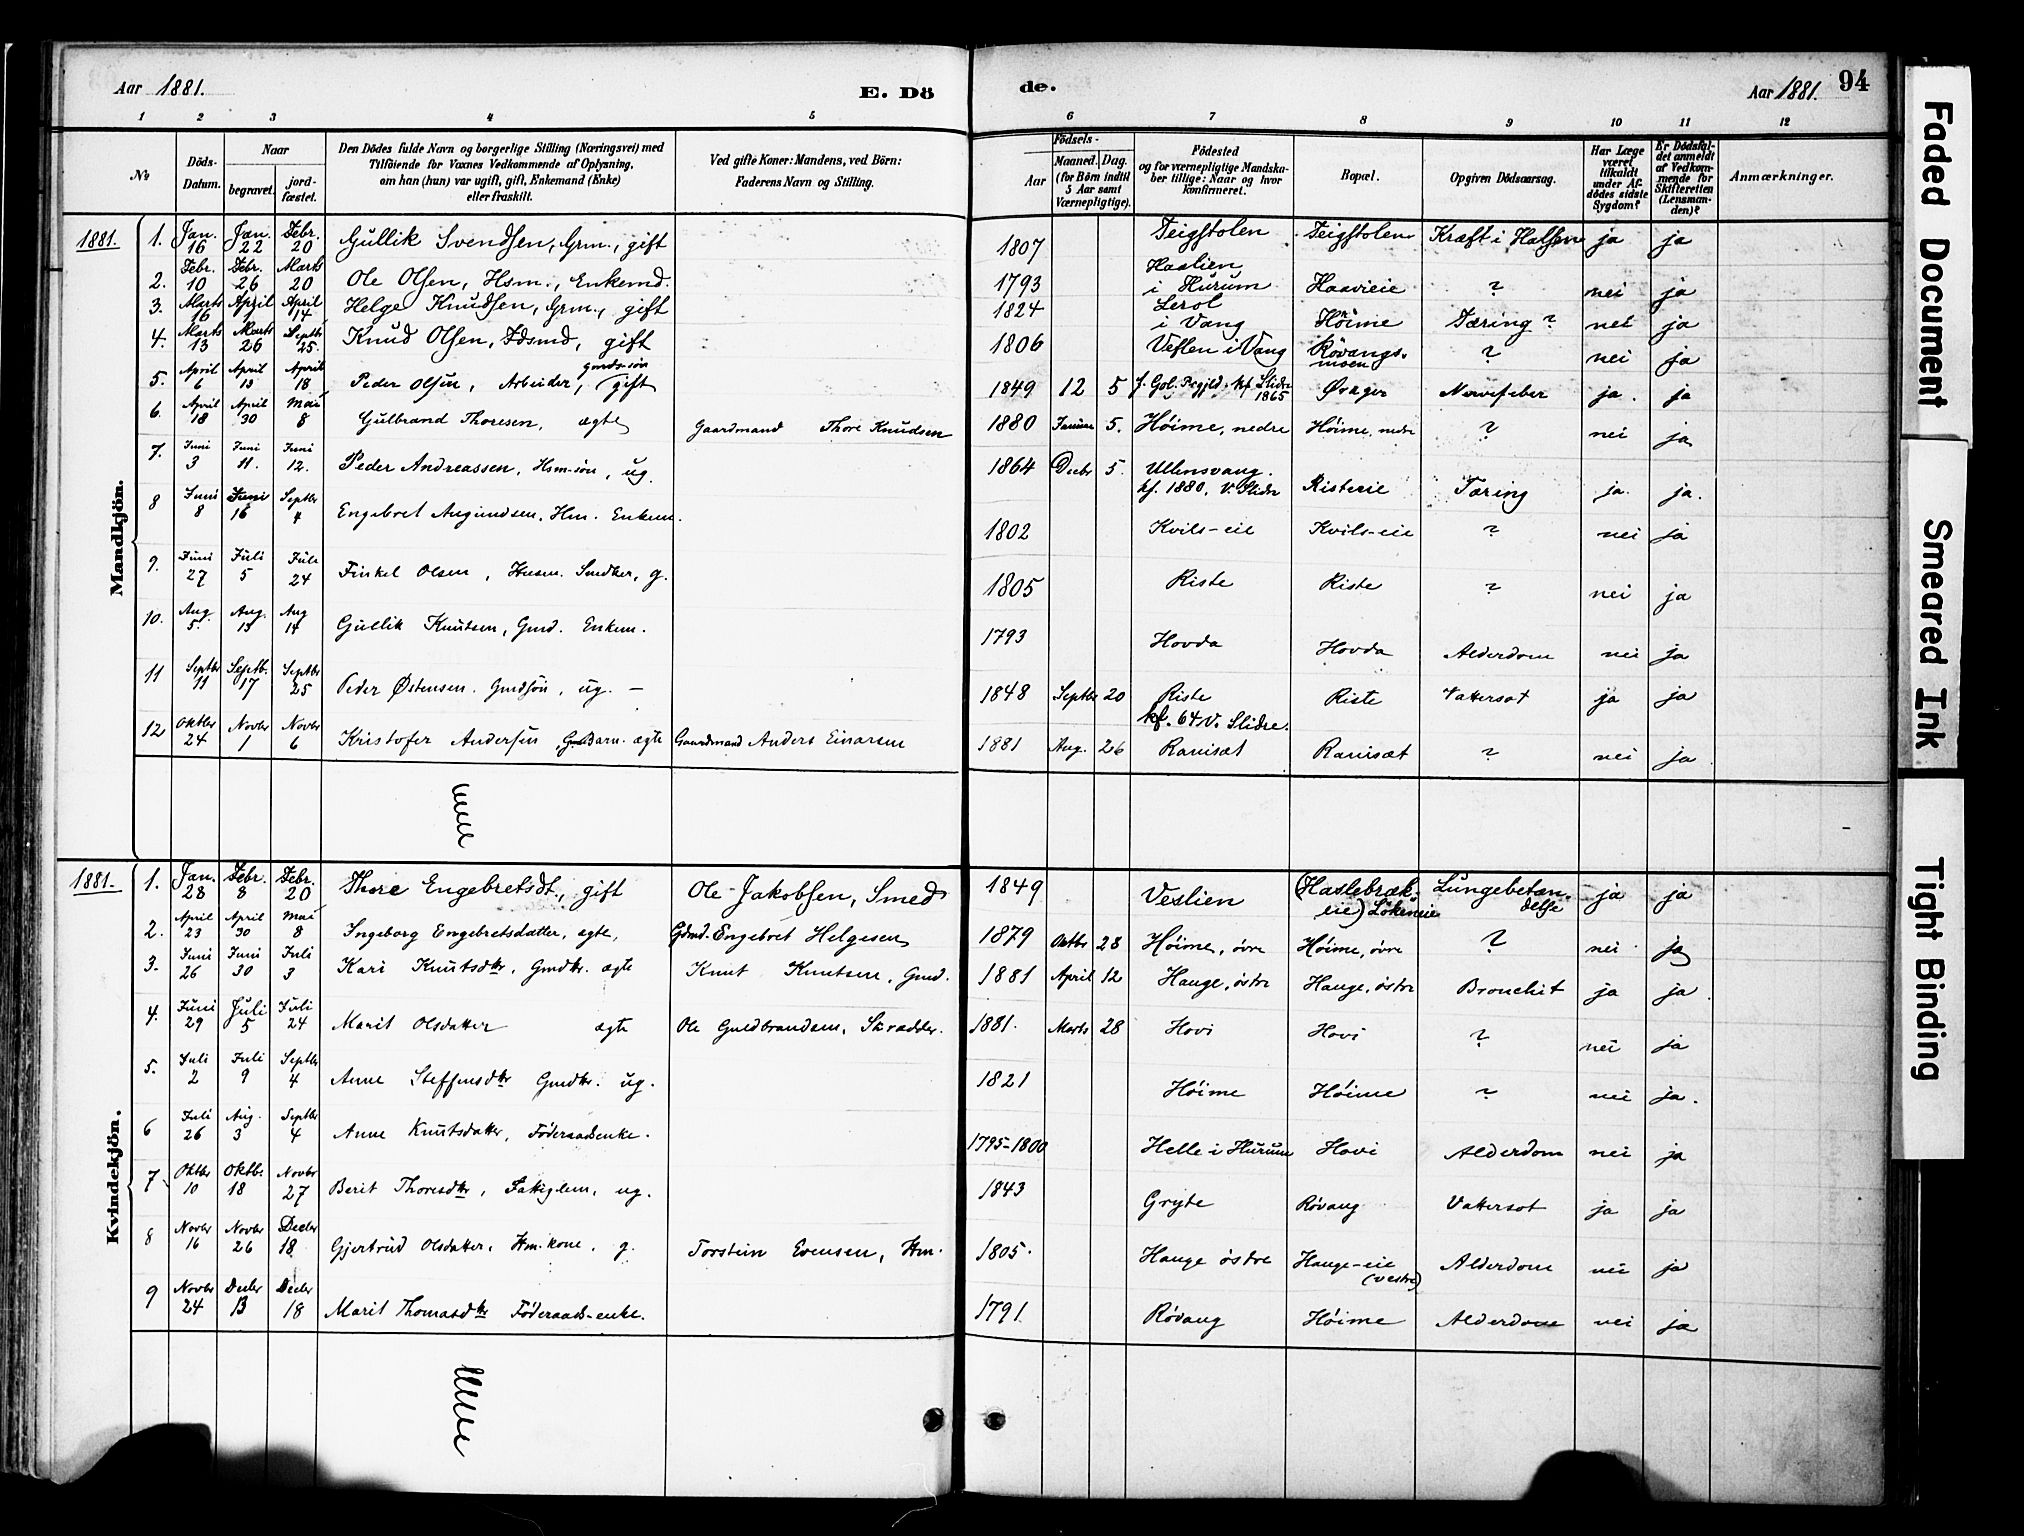 Aar 1881. E. Dö de. Aar 1881. 94
1 2 3 4 5 6 7 8 9 10 11 12
No
Döds-Datum.
Naar
begravet. jordfæstet.
Den Dödes fulde Navn og borgerlige Stilling (Næringsvei) med
Tilföiende for Voxnes Vedkommende af Oplysning,
om han (hun) var ugift, gift, Enkemand (Enke)
eller fraskilt.
Ved gifte Koner: Mandens, ved Börn:
Faderens Navn og Stilling.
Födsels-
Aar Maaned. Dag.
(for Börn indtil
5 Aar samt
Værnepligtige).
Födested
og for værnepligtige Mandska-
ber tillige: Naar og hvor
konfirmeret.
Bopæl.
Opgiven Dödsaarsag.
Har Læge
været
tilkaldt
under Af-
dödes sidste
Sygdom?
Er Dödsfal-
det anmeldt
af Vedkom-
mende for
Skifteretten
(Lensman-
den)?
Anmærkninger.
Mandkjön.
1881. 1. Jan. 16 Jan. 22 Febr. 20 Gullik Svendsen, Grm., gift 1807 Teigstolen Teigstolen Kræft i Halsen ja ja
2. Febr. 10 Febr. 26 Marts 20 Ole Olsen, Hsm., Enkemd. 1793 Haalien i Hurum Haavieie ? nei ja
3. Marts 16 April 1 April 14 Helge Knudsen, Grm., gift 1824 Lerol i Vang Höime Tæring ? nei ja
4. Marts 13 Marts 26 Septbr 25. Knud Olsen, Fdsmd, gift 1806 Veflen i Vang Rövangs-moen ? nei ja
5. April 6 April 13 April 18 Peder Olsen, Arbeider, gmds-søn gift 1849 12 5 f. Gol. Prgjld. kf. Slidre 1865 Øvager Nervefeber ja. ja
6. April 18 April 30 Mai 8 Gulbrand Thoresen, ægte Gaardmand Thore Knudsen 1880 Januar 5. Höime, nedre Höime, nedre ? nei ja
7. Juni 3 Juni 11. Juni 12. Peder Andreassen, Hsm-søn, ug. 1864 Decbr 5. Ullensvang. kf. 1880. V. Slidre Risteeie Tæring ja. ja.
8 Juni 8 Juni 16 Septbr 4 Engebret Amundsen, Hm. Enkem. 1802 Kvils-eie Kvils-eie ? nei ja
9. Juni 27 Juli 5 Juli 24 Finkel Olsen, Husm. Snedker, g. 1805 Riste Riste ? nei ja
10. Aug. 5. Aug. 13 Aug 14 Gullik Knutsen, Gmd. Enkem. 1793 Hovda Hovda Alderdom nei ja
11 Septbr 11 Septb. 17 Septbr 25 Peder Østensen. Gmdsøn, ug. – 1848 Septbr 20 Riste kf. 64 V. Slidre. Riste Vattersot ja ja
12 Oktbr 24 Novbr 1 Novbr 6 Kristofer Andersen, Barn. ægte Gaardmand Anders Einarsen 1881 Aug. 26 Ranisæt Ranisæt ? nei ja
Kvindekjön.
1881. 1. Jan. 28 Febr. 8 Febr. 20 Thore Engebretsdt., gift Ole Jakobsen, Smed 1849 Veslien (Haslebræk-eie) Lökeneie Lungebetændelse ja ja
2. April 23 April 30 Mai 8 Ingeborg Engebretsdatter, ægte, Gdmd. Engebret Helgesen 1879 Oktbr 28 Höime, övre Höime, övre ? nei ja
3. Juni 26 Juni 30 Juli 3 Kari Knutsdtr, Gmdtr. ægte Knut Knutsen, Gmd. 1881 April 12 Hauge, östre Hauge, östre Bronchit ja ja
4. Juni 29 Juli 5 Juli 24 Marit Olsdatter ægte Ole Guldbrandsen, Skrædder. 1881. Marts 28 Hovi Hovi ? nei ja
5. Juli 2 Juli 9 Septbr 4 Anne Steffensdtr Gmdtr. ug. 1821 Höime Höime ? nei ja.
6 Juli 26 Aug. 3 Septbr 4 Anne Knutsdatter, Föderaadsenke. 1795-1800 Helle i Hurum Hovi Alderdom nei ja
7 Oktbr 10 Oktb. 18 Novbr 27 Berit Thoresdtr, Fattiglem, ug. 1843 Gryte Røvang Vattersot ja ja
8 Novbr 16 Novbr 26 Decbr 18. Gjertrud Olsdatter, Hm. kone, g. Torstein Evensen, Hm. 1805. Hauge östre Hauge-eie (vestre) Alderdom nei ja
9 Novbr 24 Decbr 13 Decbr 18 Marit Thomasdtr Föderaads-enke. 1791 Røvang Höime Alderdom nei ja
Faded Document
Smeared Ink
Tight Binding